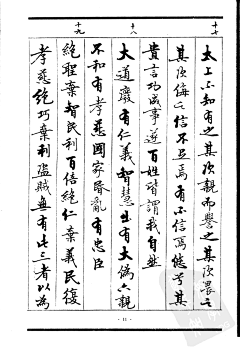 十七
太上不知有之其次親而譽之其次畏之
其次侮之信不足焉有不信焉悠兮其
貴言功成事遂百姓皆謂我自然
十八
大道廢有仁義智慧出有大偽六親
不和有孝慈國家昏亂有忠臣
十九
絕聖棄智民利百倍絕仁棄義民復
孝慈絕巧棄利盜賊無有此三者以為
· 11 ·